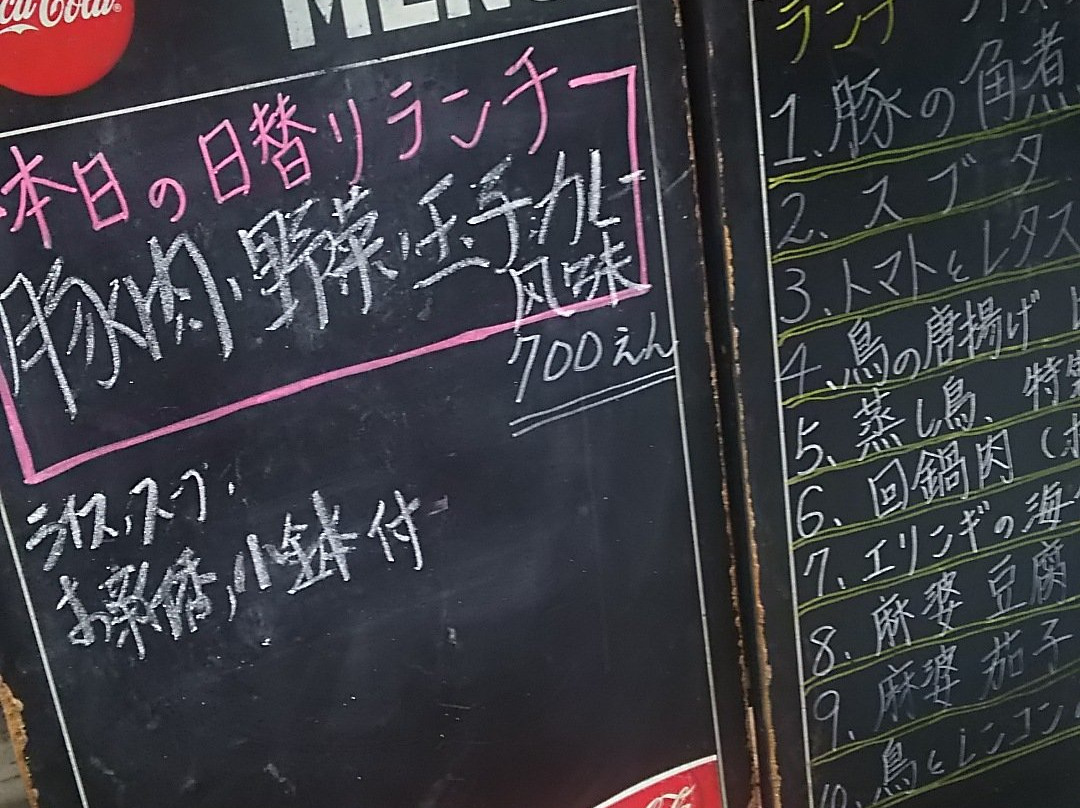 Coca-Cola
MENU
本日の日替りランチ
豚肉、野菜、玉子カレー
風味
700えん
ライス、スープ、
お新香、小鉢付
ランチ
1.豚の角煮
2.スブタ
3.トマトとレタス
4.鳥の唐揚げ
5.蒸し鳥、特製
6.回鍋肉(
7.エリンギの海
8.麻婆豆腐
9.麻婆茄子
10.鳥とレンコン